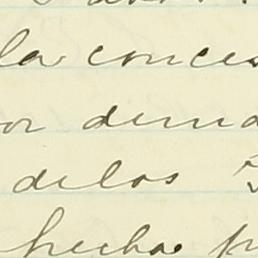 la conces
or dema
delos
hechos p